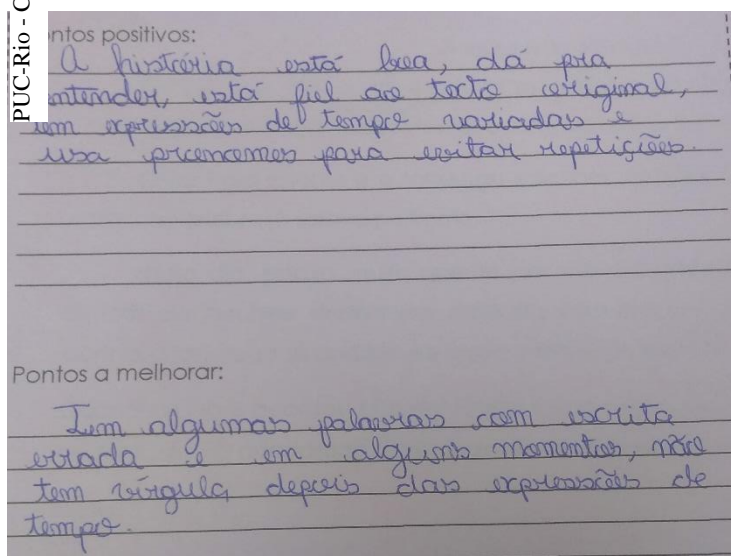 PUC-Rio - C
ntos positivos:
A história está boa, dá pra
entender, está fiel ao texto original,
tem expressões de tempo variadas e
usa pronomes para evitar repetições.
Pontos a melhorar:
Tem algumas palavras com escrita
errada e em alguns momentos, não
tem vírgula depois das expressões de
tempo.